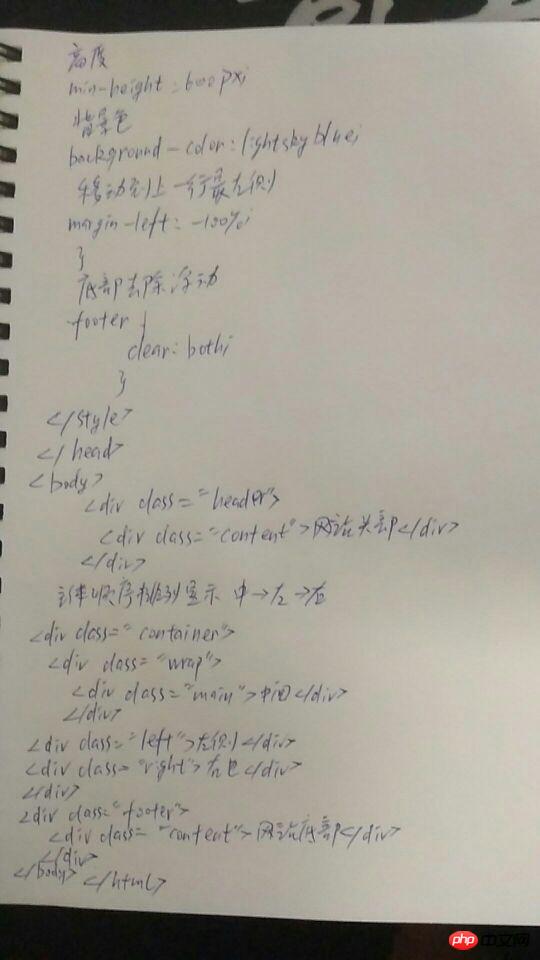 高度
min-height: 600px;
背景色
background-color: lightskyblue;
移动到上一行最左侧
margin-left: -100%;
}
底部去除浮动
footer {
clear: both;
}
</style>
</head>
<body>
<div class="header">
<div class="content">网站头部</div>
</div>
主体顺序排列显示 中→左→右
<div class="container">
<div class="wrap">
<div class="main">中间</div>
</div>
<div class="left">左侧</div>
<div class="right">右</div>
</div>
<div class="footer">
<div class="content">网站底部</div>
</div>
</body> </html>
php 中文网